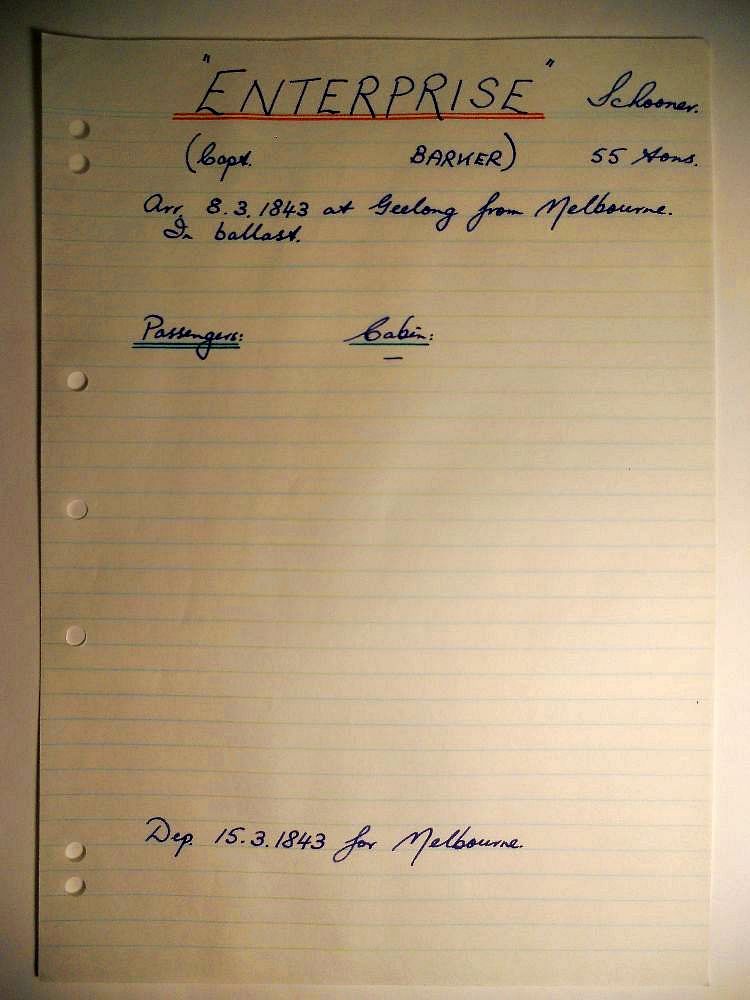 "ENTERPRISE" Schooner.
(Capt. BARKER) 55 tons.
Arr. 8.3.1843 at Geelong from Melbourne.
In ballast.
Passengers: Cabin:
—
Dep. 15.3.1843 for Melbourne.